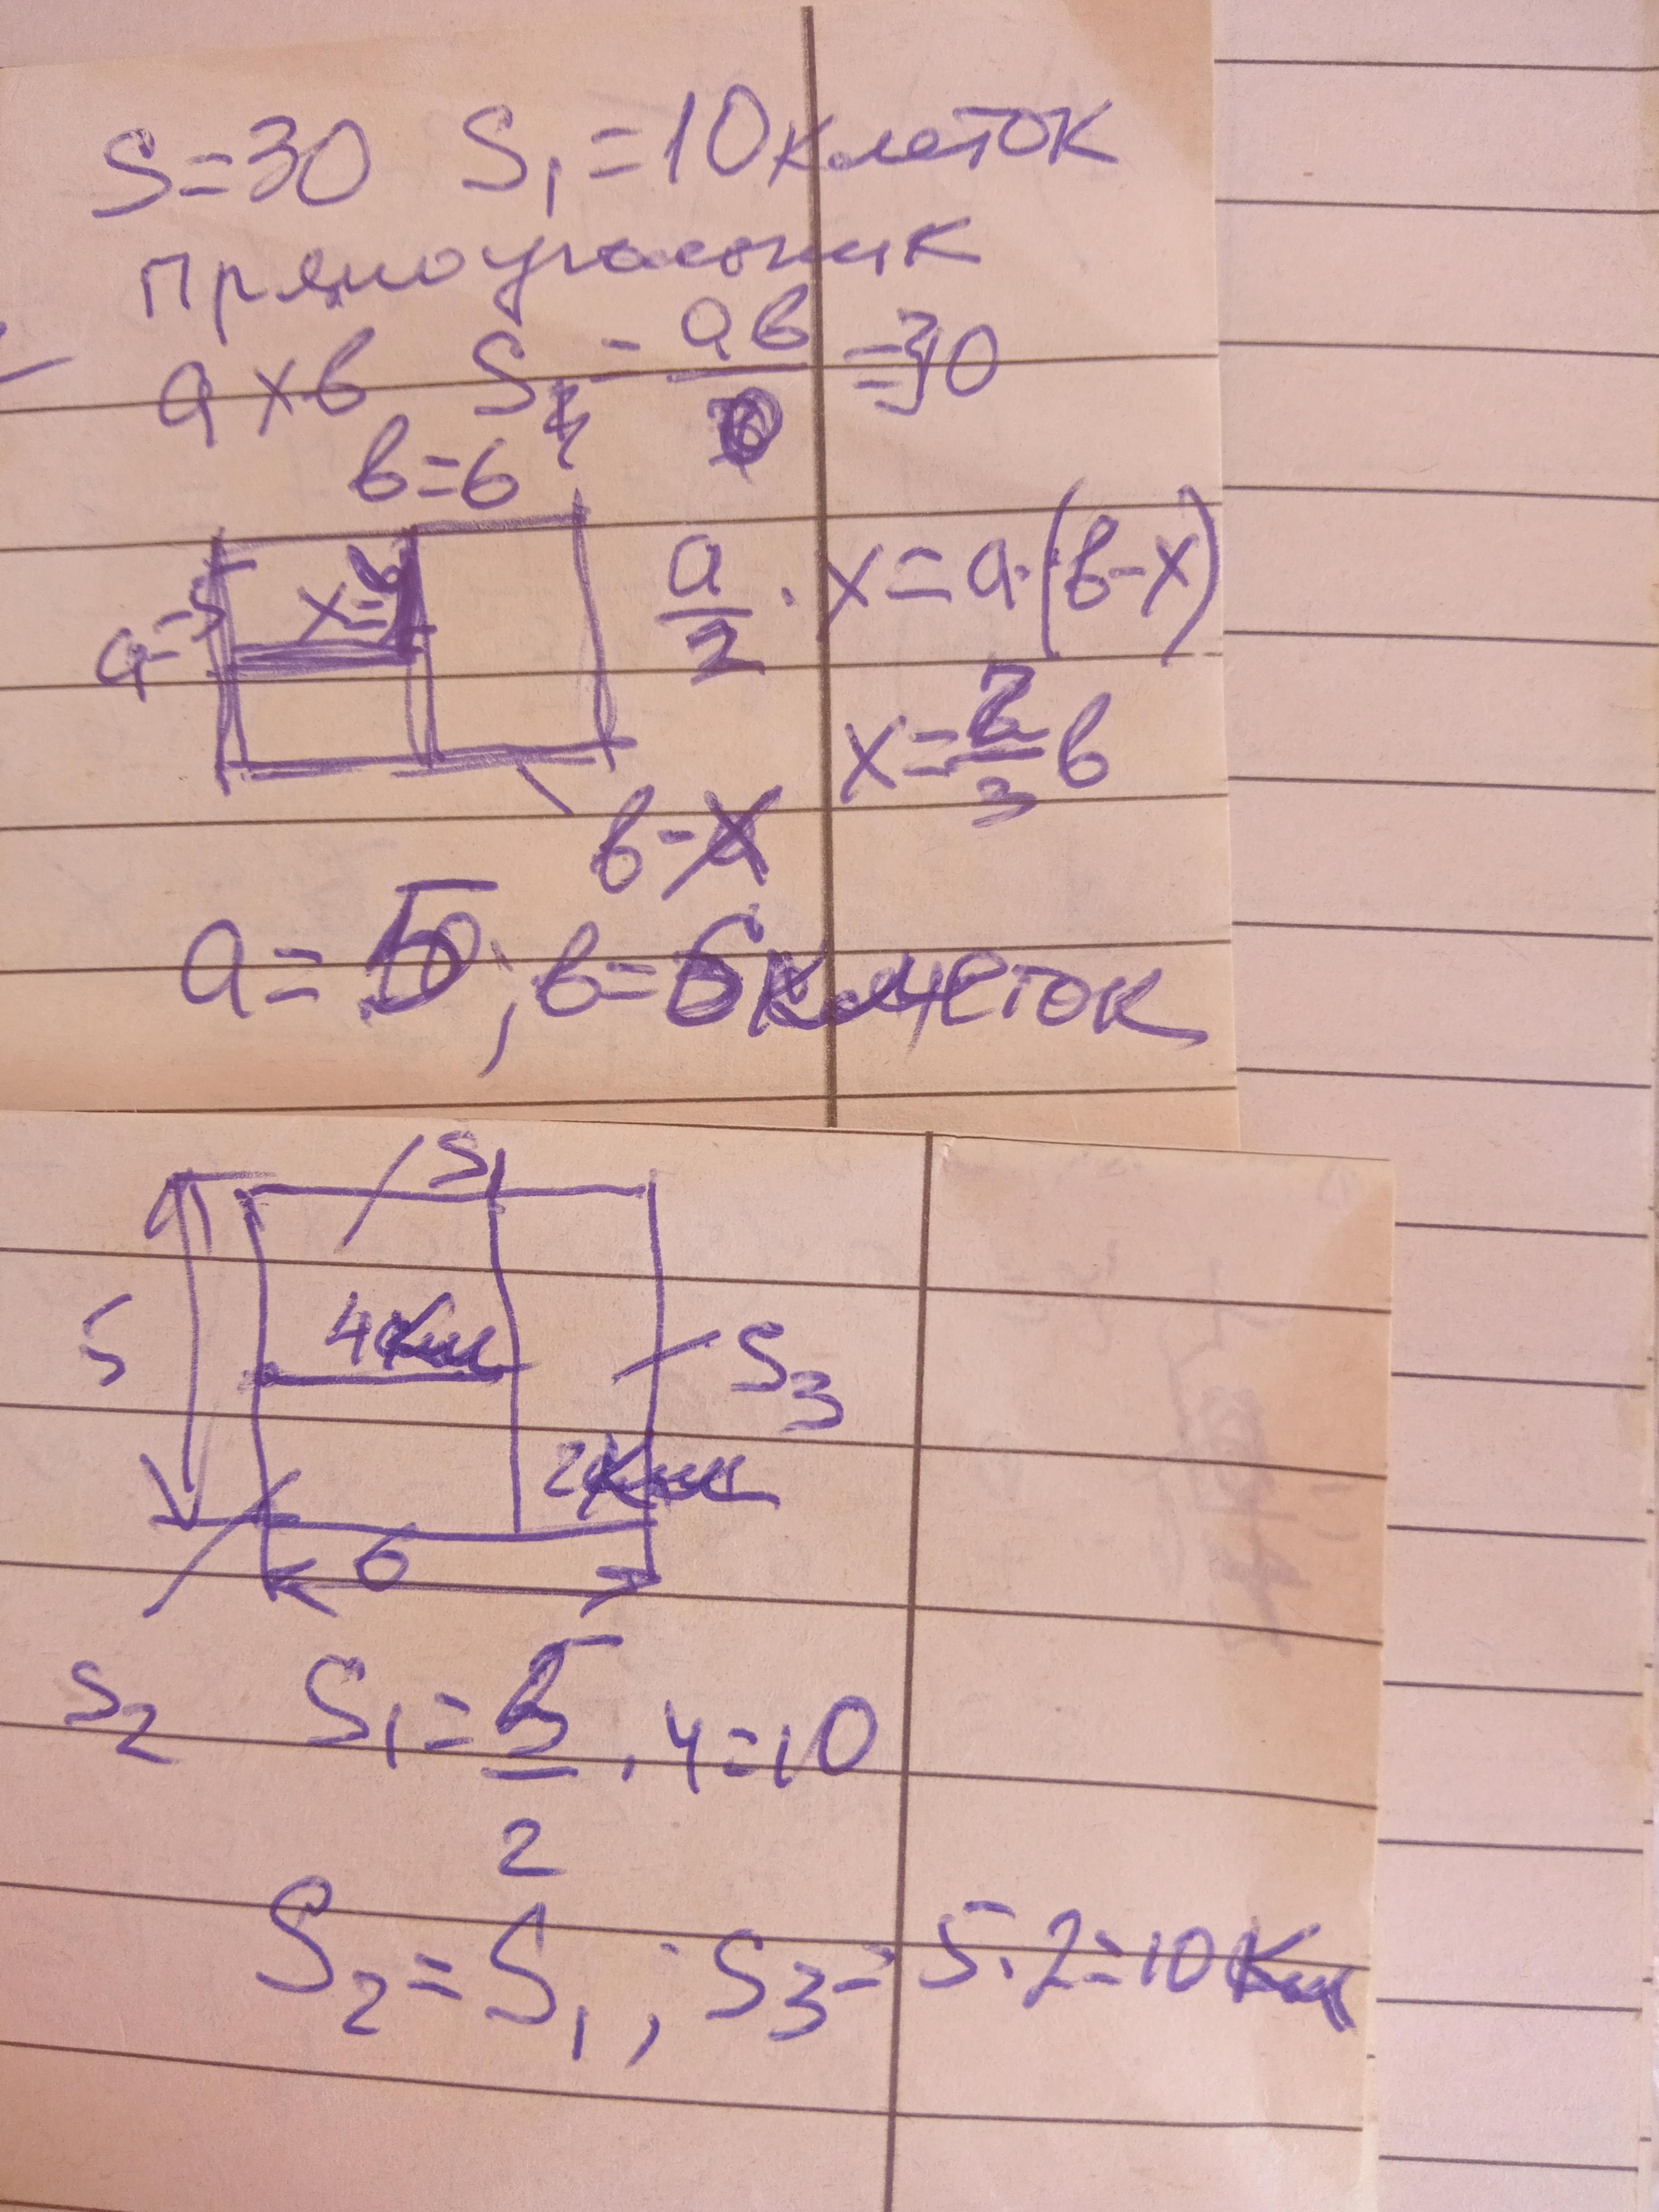 S=30 S₁=10 клеток
прямоугольник
a×b S = ab =30
b=6
a=5
x=4
a/2 · x=a·(b-x)
x=2/3 b
b-x
a=5; b=6 клеток
S₁
5
4 кл
S₃
2 кл
6
S₂ S₁=5/2 · 4=10
S₂=S₁; S₃=5·2=10 кл